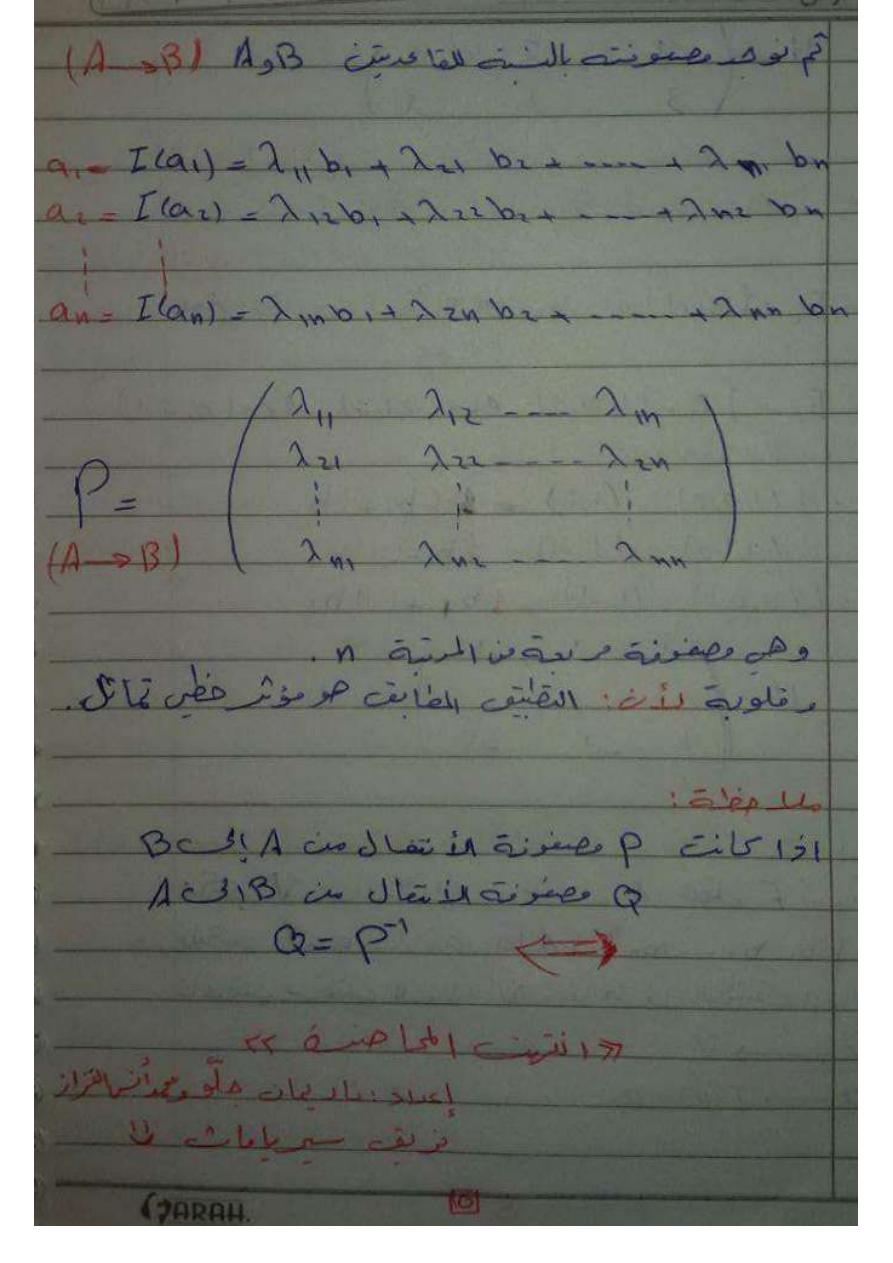 ثم نوجد مصفوفته بالنسبة للقاعدتين A و B (A → B)
a₁ = I(a₁) = λ₁₁ b₁ + λ₂₁ b₂ + ..... + λn₁ bn
a₂ = I(a₂) = λ₁₂ b₁ + λ₂₂ b₂ + ..... + λn₂ bn
an = I(an) = λ₁n b₁ + λ₂n b₂ + ..... + λnn bn
λ₁₁ λ₁₂ ---- λ₁n
λ₂₁ λ₂₂ ----- λ₂n
P =
(A → B) λn₁ λn₂ ..... λnn
وهي مصفوفة مربعة من المرتبة n .
وقلوبة لأن: التطبيق المطابق هو مؤثر خطي تماثل.
ملاحظة :
اذا كانت P مصفوفة الأنتقال من A إلى B
Q مصفوفة الأنتقال من B الى A
⟺ Q = P⁻¹
<< انتهت المحاضرة >>
إعداد : ناريمان حلّو ومحمد أنس القزاز
فريق سيريامات
JARAH.